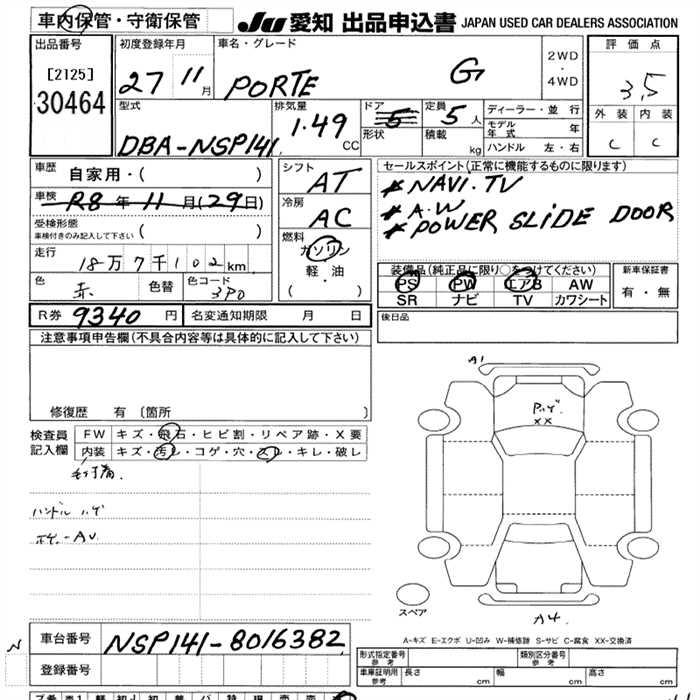 車内保管・守衛保管
JU 愛知 出品申込書 JAPAN USED CAR DEALERS ASSOCIATION
出品番号
[2125]
30464
初度登録年月
27 11月
車名・グレード
PORTE G
2WD
・
4WD
評価点
3.5
外装 内装
C C
型式
DBA-NSP141
排気量
1.49 CC
ドア
5
形状
定員
5人
積載 kg
ディーラー・並行
モデル年式 年
ハンドル 左・右
車歴
自家用・( )
車検
R8年11月(29日)
受検形態
車検付きのみ記入して下さい ( )
走行
18万7千102km
色
赤
色替
色コード
3P0
シフト
AT
冷房
AC
燃料
ガソリン
軽・油
( )
セールスポイント(正常に機能するものに限ります)
* NAVI.TV
* A.W
* POWER SLIDE DOOR
装備品(純正品に限り○をつけてください)
PS PW エアB AW
SR ナビ TV カワシート
新車保証書
有・無
R券 9340円
名変通知期限 月 日
後日品
注意事項申告欄(不具合内容等は具体的に記入して下さい)
修復歴 有〔箇所 〕
検査員
記入欄
FW キズ・飛石・ヒビ割・リペア跡・X要
内装 キズ・汚レ・コゲ・穴・スレ・キレ・破レ
ハンドル ハゲ
A1
XX
スペア
A4
A-キズ E-エクボ U-凹み W-補修跡 S-サビ C-腐食 XX-交換済
N
車台番号 NSP141-8016382
登録番号
形式指定番号
参考
類別区分番号
参考
車庫証明用
参考
長さ cm 幅 cm 高さ cm